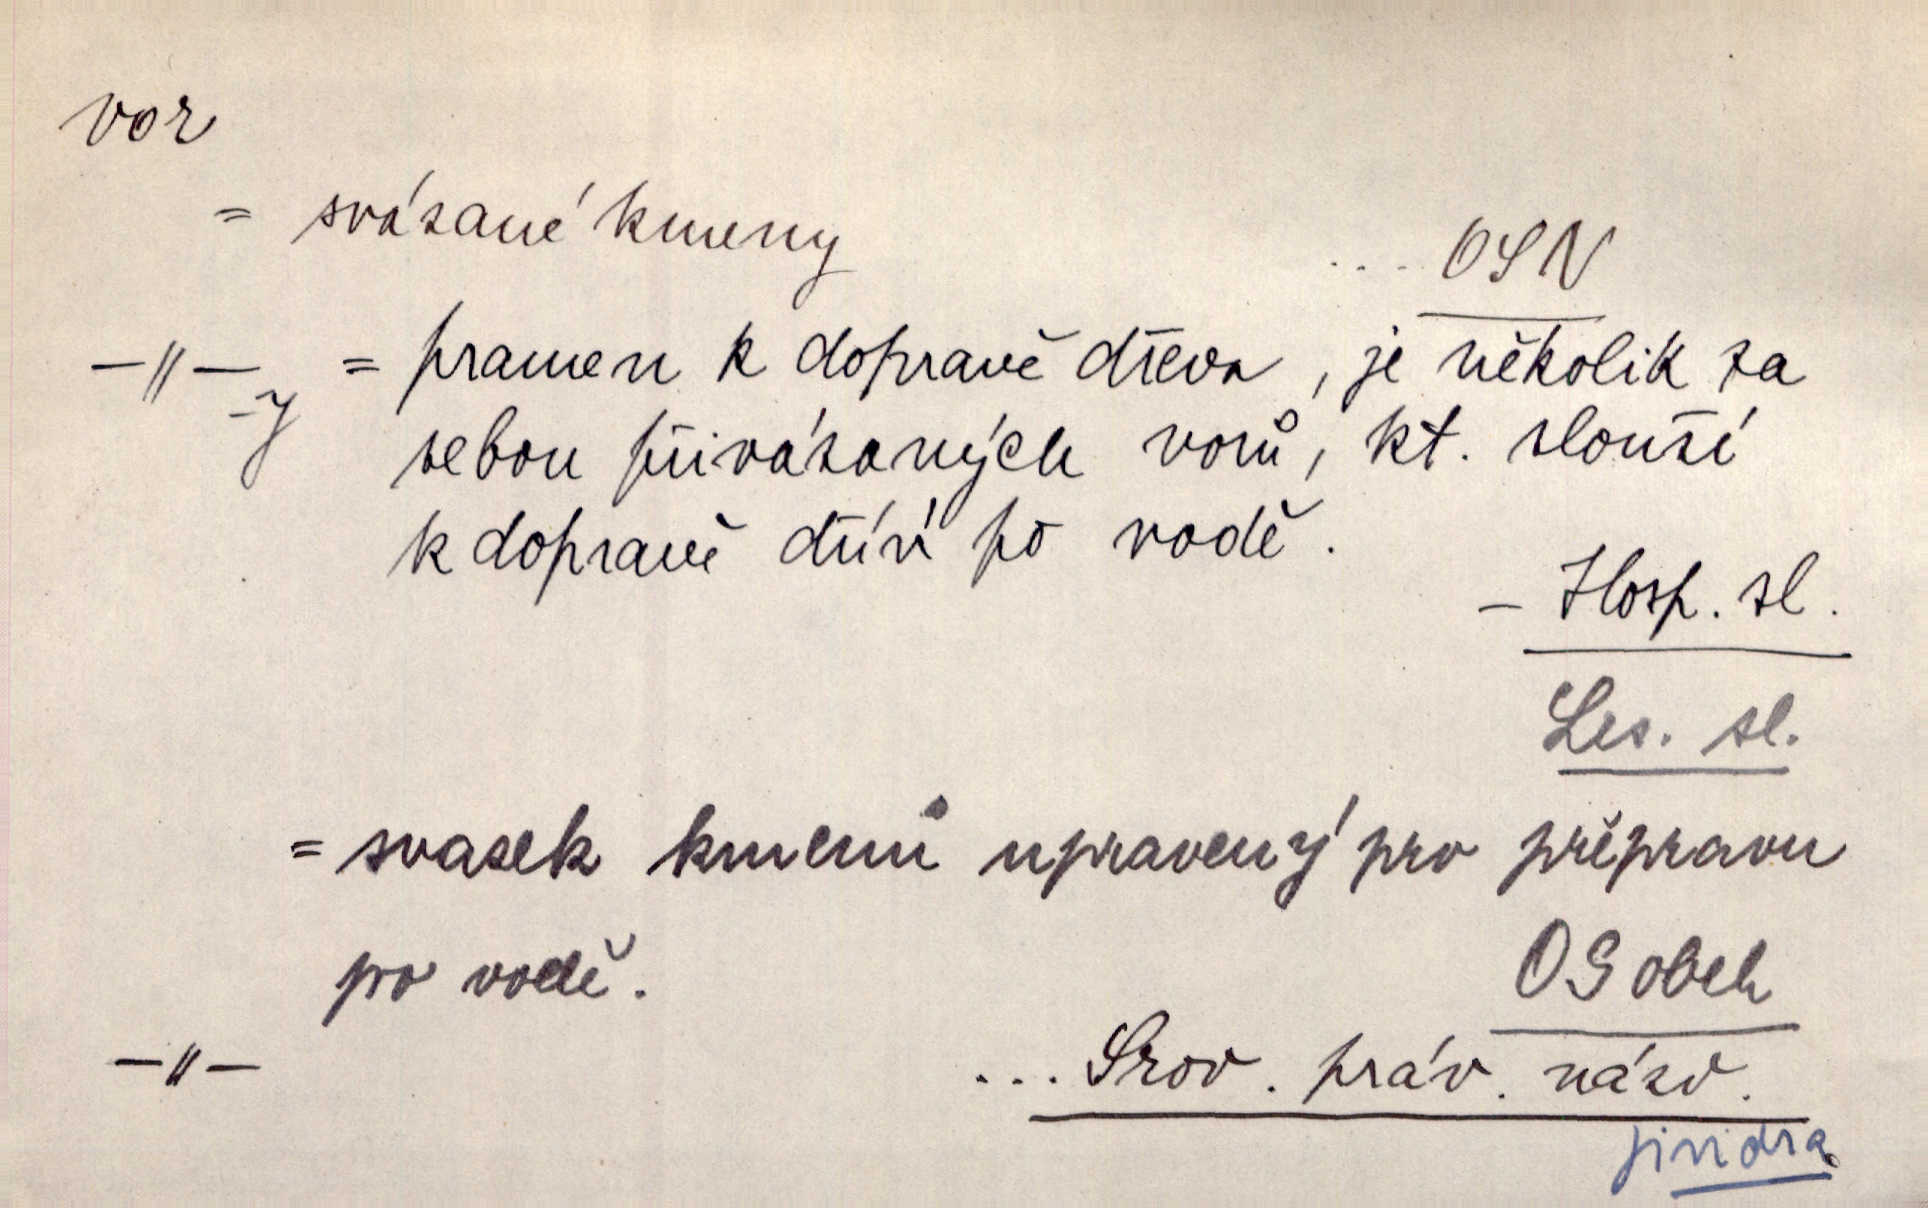 vor
= svázané kmeny
... OSN
—〃— = pramen k dopravě dřeva, je několik za
-y
sebou přivázaných vorů, kt. slouží
k dopravě dříví po vodě.
– Hosp. sl.
Les. sl.
= svazek kmenů upravený pro přepravu
po vodě.
OS obch
—〃— ... Srov. práv. názv.